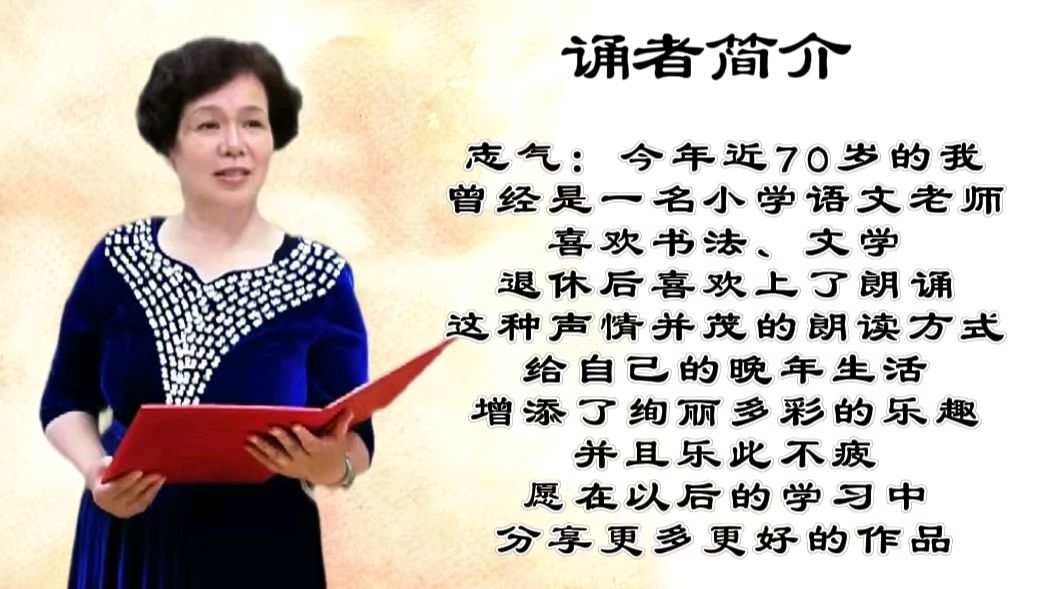 诵者简介
志气：今年近70岁的我
曾经是一名小学语文老师
喜欢书法、文学
退休后喜欢上了朗诵
这种声情并茂的朗读方式
给自己的晚年生活
增添了绚丽多彩的乐趣
并且乐此不疲
愿在以后的学习中
分享更多更好的作品